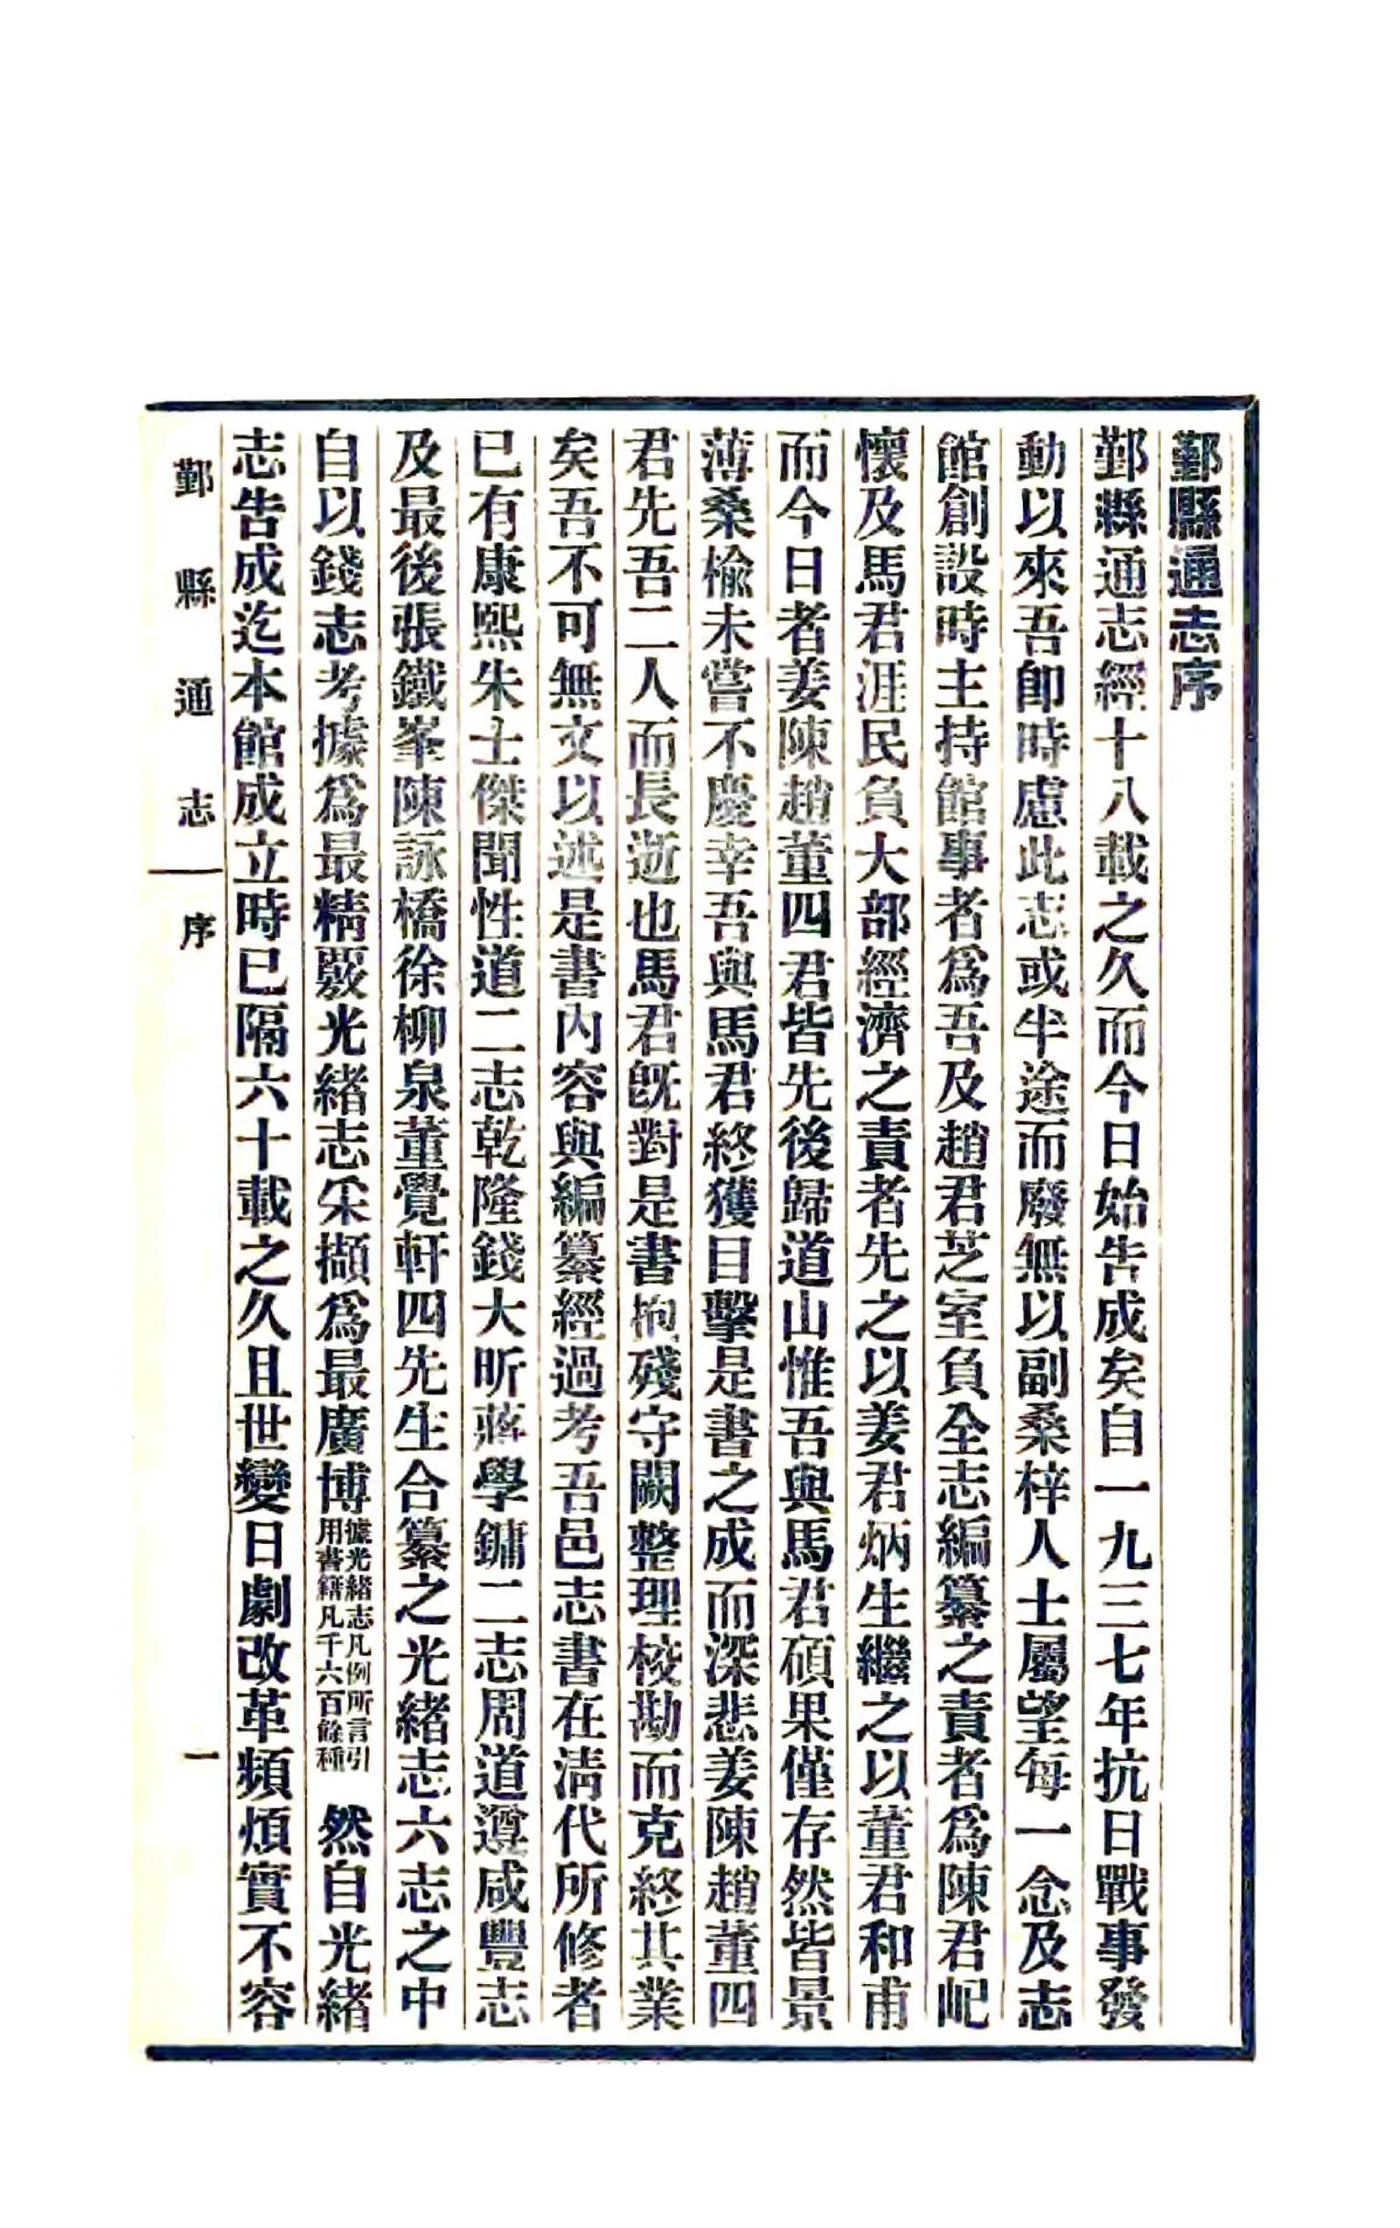 鄞縣通志序
鄞縣通志經十八載之久而今日始告成矣自一九三七年抗日戰事發
動以來吾卽時慮此志或半途而廢無以副桑梓人士屬望每一念及志
館創設時主持館事者爲吾及趙君芝室負全志編纂之責者爲陳君屺
懷及馬君涯民負大部經濟之責者先之以姜君炳生繼之以董君和甫
而今日者姜陳趙董四君皆先後歸道山惟吾與馬君碩果僅存然皆景
薄桑榆未嘗不慶幸吾與馬君終獲目擊是書之成而深悲姜陳趙董四
君先吾二人而長逝也馬君旣對是書抱殘守闕整理校勘而克終其業
矣吾不可無文以述是書內容與編纂經過考吾邑志書在淸代所修者
已有康熙朱士傑聞性道二志乾隆錢大昕蔣學鏞二志周道遵咸豐志
及最後張鐵峯陳詠橋徐柳泉董覺軒四先生合纂之光緒志六志之中
自以錢志考據爲最精覈光緒志采擷爲最廣博據光緒志凡例所言引用書籍凡千六百餘種然自光緒
志告成迄本館成立時已隔六十載之久且世變日劇改革頻煩實不容
鄞縣通志 序 一